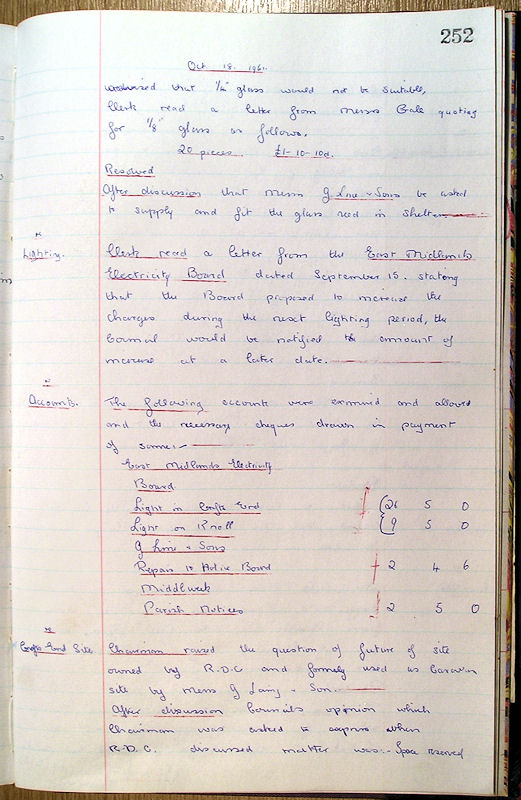 252
Oct 18. 1961.
that 1/4" glass would not be suitable,
Clerk read a letter from Messrs Gale quoting
for 1/8" glass as follows.
20 pieces £1-10-10d.
Resolved
After discussion that Messrs G Line & Sons be asked
to supply and fit the glass in shelter
Lighting. Clerk read a letter from the East Midlands
Electricity Board dated September 15. stating
that the Board proposed to increase the
charges during the next lighting period, the
Council would be notified the amount of
increase at a later date.
Accounts. The following accounts were examined and allowed
and the necessary cheques drawn in payment
of same:-
East Midlands Electricity
Board
Light in Crofts End 26 5 0
Light on Knoll 9 5 0
G Line & Sons
Repairs to Notice Board 2 4 6
Middleweek
Parish Notices 2 5 0
Crofts End Site Chairman raised the question of future of site
owned by R.D.C and formely used as Caravan
site by Messrs G Laing & Son.
After discussion Councils opinion which
Chairman was asked to express when
R.D.C. discussed matter was:- Space reserved